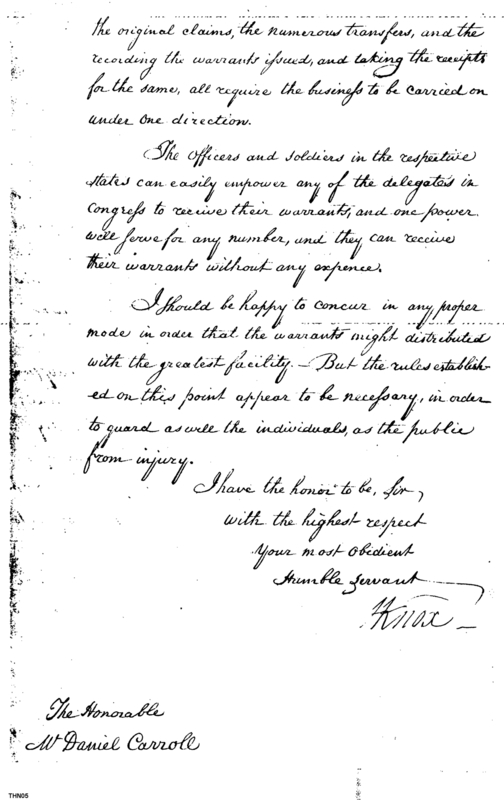 the original claims, the numerous transfers, and the
recording the warrants issued, and taking the receipts
for the same, all require the business to be carried on
under one direction.
The officers and soldiers in the respective
states can easily empower any of the delegates in
Congress to receive their warrants, and one power
will serve for any number, and they can receive
their warrants without any expence.
I should be happy to concur in any proper
mode in order that the warrants might distributed
with the greatest facility. — But the rules establish-
ed on this point appear to be necessary, in order
to guard as well the individuals, as the public
from injury.
I have the honor to be, Sir,
with the highest respect
Your most obedient
Humble Servant
HKnox
The Honorable
Mr Daniel Carroll
THN05